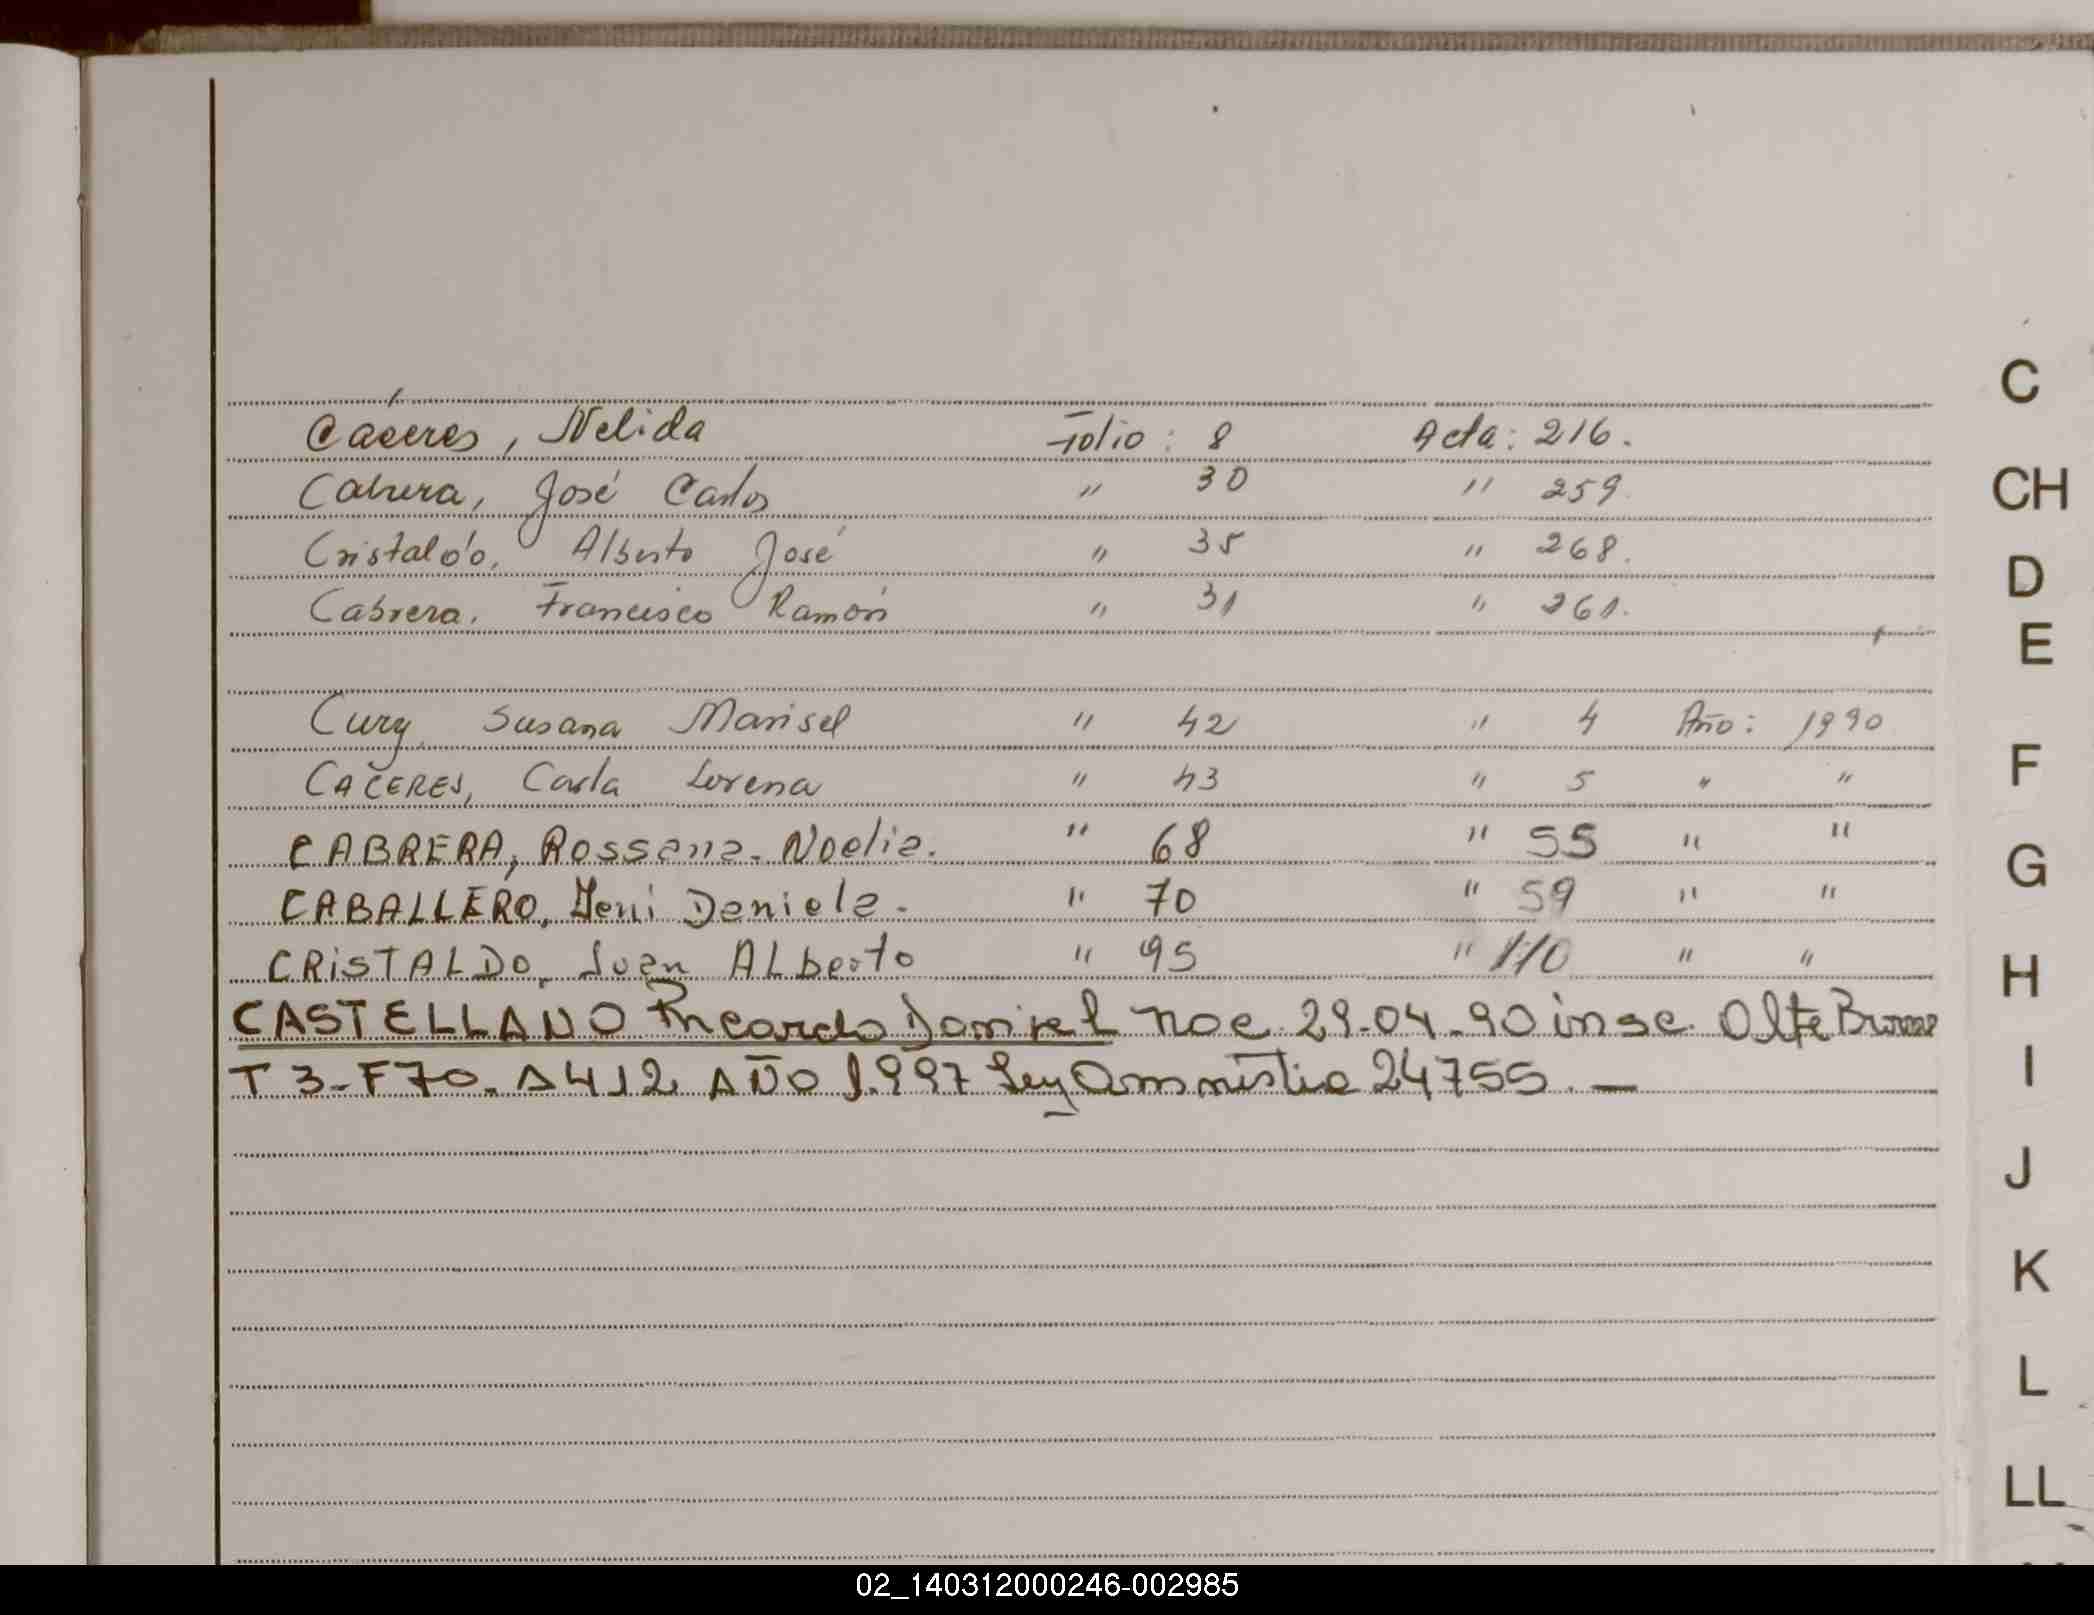 Cáceres, Nelida Folio: 8 Acta: 216.
Cabrera, José Carlos " 30 " 259.
Cristaldo, Alberto José " 35 " 268.
Cabrera, Francisco Ramón " 31 " 261.
Cury, Susana Marisel " 42 " 4 Año: 1990
CACERES, Carla Lorena " 43 " 5 " "
CABRERA, Rossana Noelia. " 68 " 55 " "
CABALLERO, Yeni Daniela. " 70 " 59 " "
CRiSTALDO, Juan ALberto " 95 " 110 " "
CASTELLANO Ricardo Daniel noc 29-04-90 insc. Alte Brown
T3-F70-A412 AÑO 1.997 Ley Amnistia 24755. —
C
CH
D
E
F
G
H
I
J
K
L
LL
02_140312000246-002985